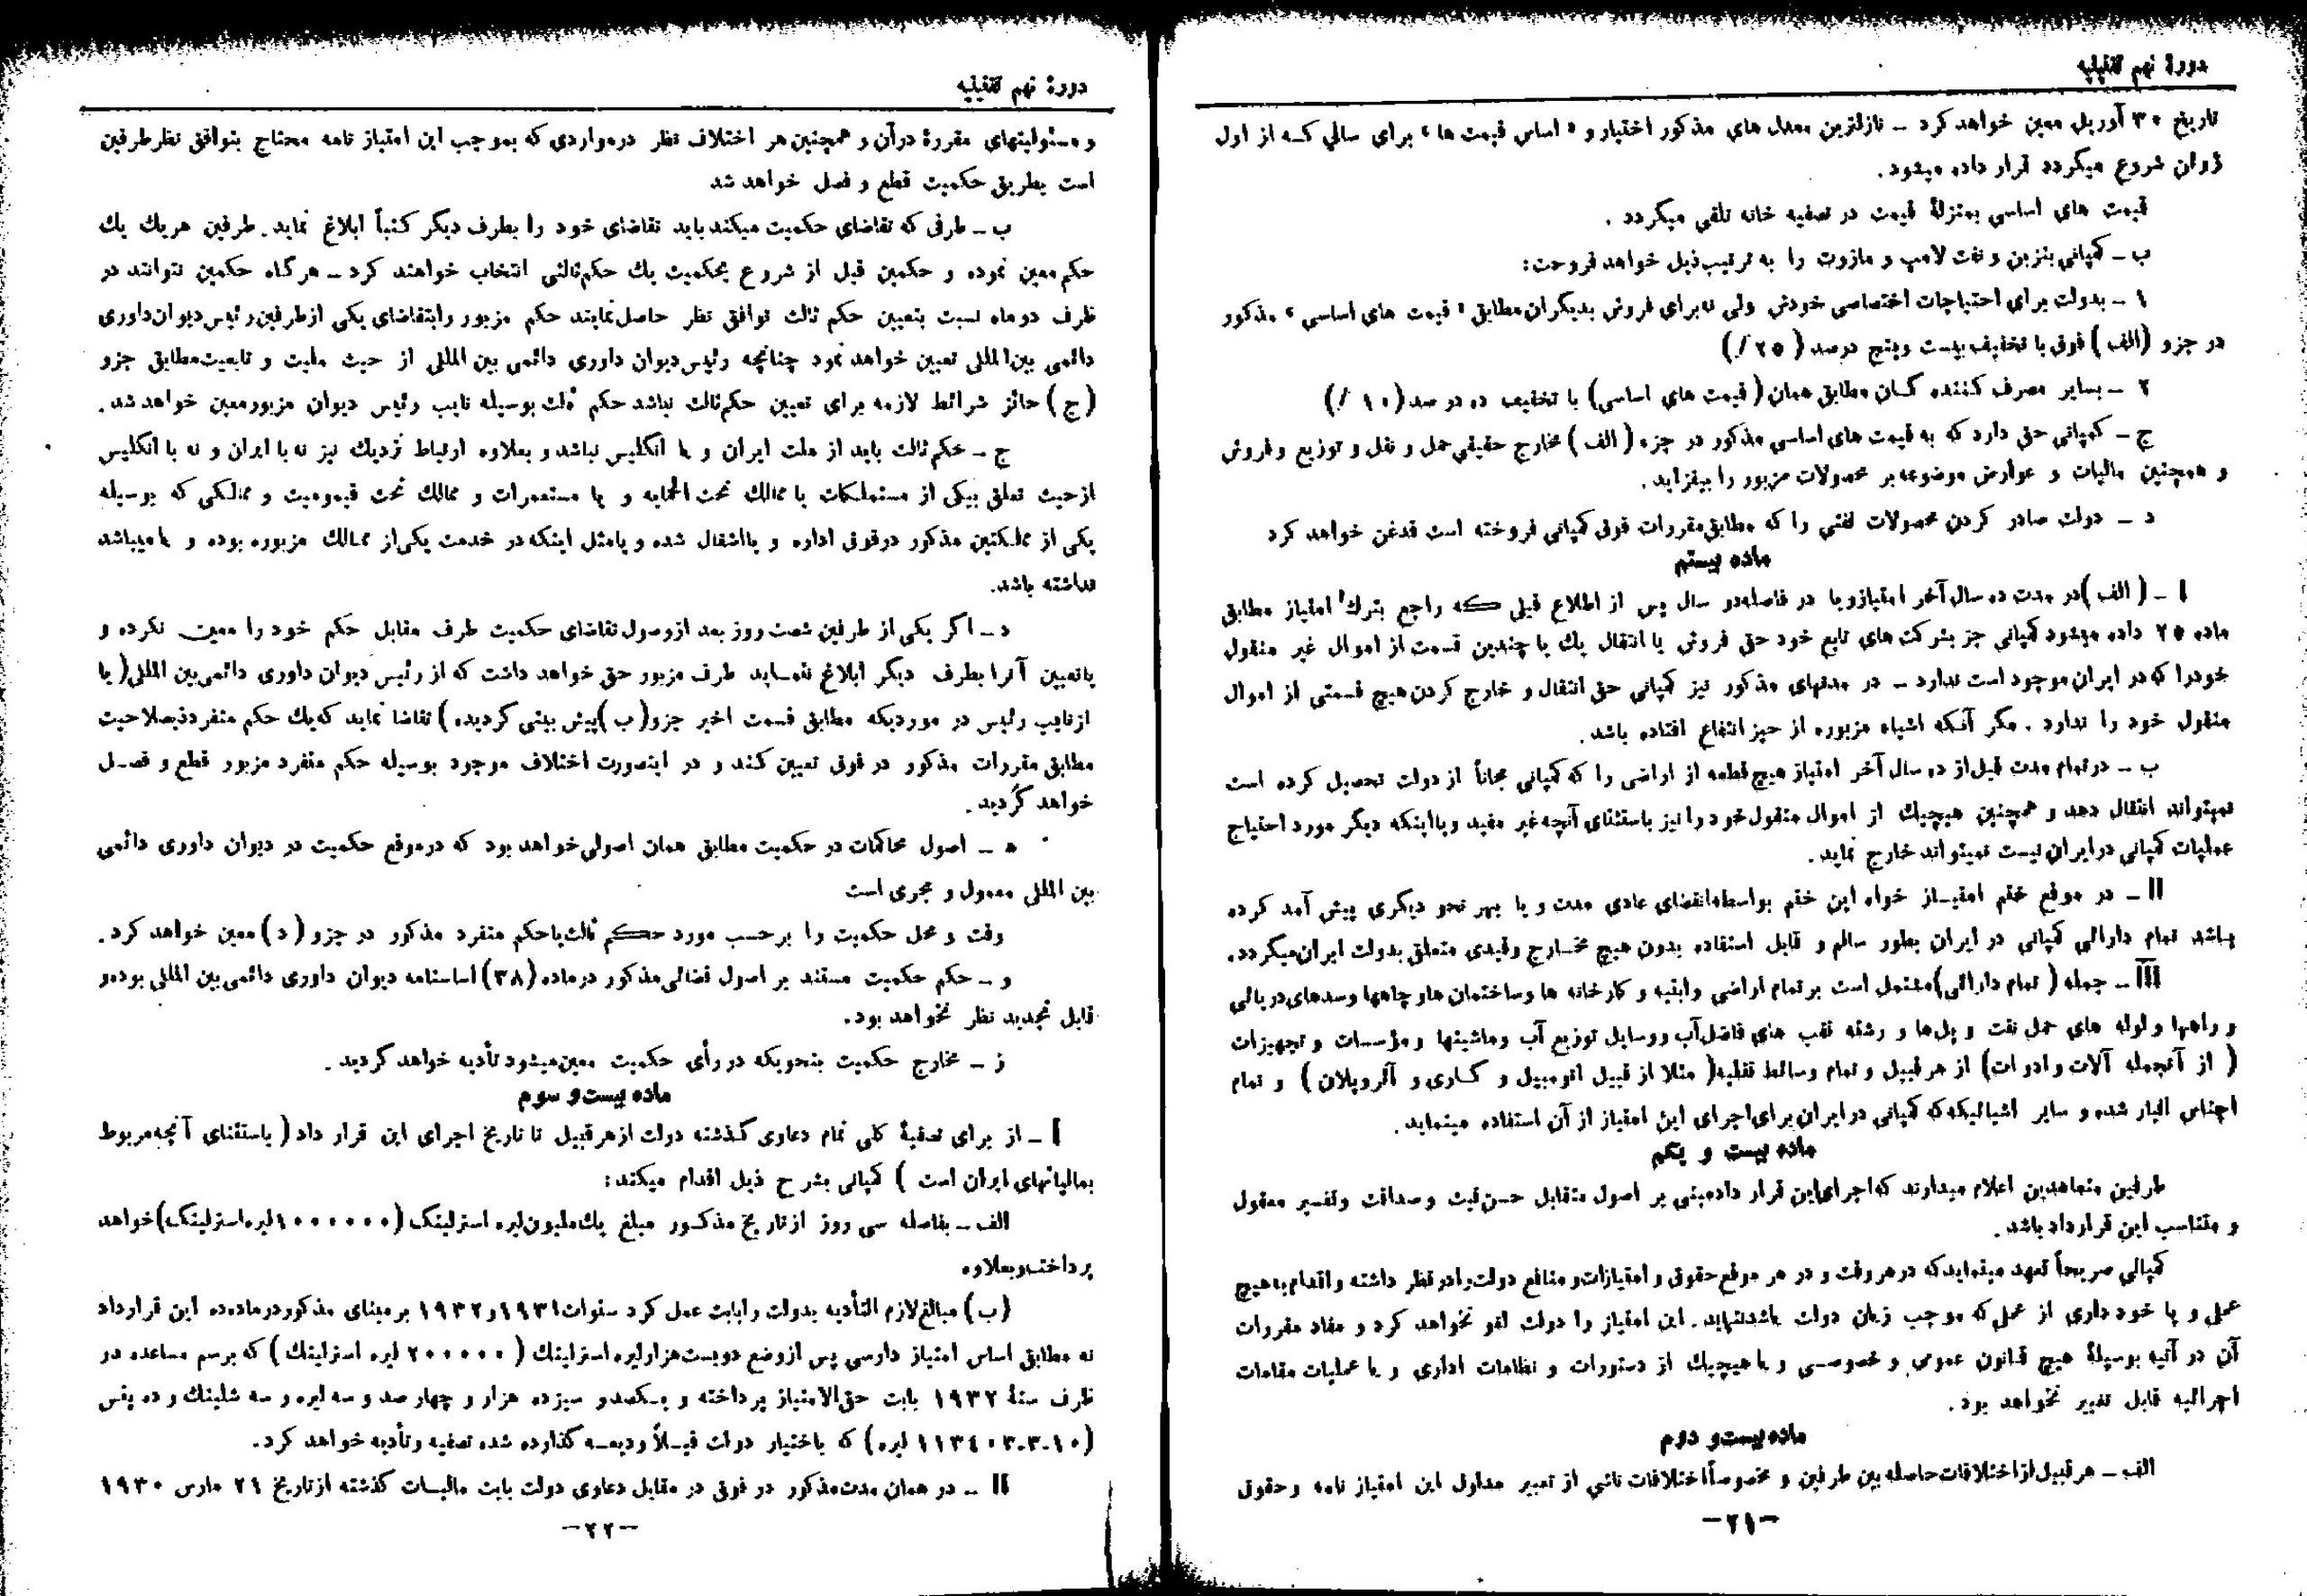 دورهٔ نهم تقنینیه
تاریخ ۳۰ آوریل معین خواهد کرد ــ نازلترین معدل های مذکور اختیار و « اساس قیمت ها » برای سالی که از اول
ژوان شروع میگردد قرار داده میشود.
قیمت های اساسی بمنزلهٔ قیمت در تصفیه خانه تلقی میگردد .
ب ــ کمپانی بنزین و نفت لامپ و مازوت را به ترتیب ذیل خواهد فروخت:
۱ ــ بدولت برای احتیاجات اختصاصی خودش ولی نه برای فروش بدیگران مطابق « قیمت های اساسی » مذکور
در جزو (الف) فوق با تخفیف بیست و پنج درصد ( ۲۵ ٪)
۲ ــ بسایر مصرف کننده گان مطابق همان ( قیمت های اساسی) با تخفیف ده در صد (۱۰ ٪)
ج ــ کمپانی حق دارد که به قیمت های اساسی مذکور در جزء ( الف ) مخارج حقیقی حمل و نقل و توزیع و فروش
و همچنین مالیات و عوارض موضوعه بر محصولات مزبور را بیفزاید .
د ــ دولت صادر کردن محصولات نفتی را که مطابق مقررات فوق کمپانی فروخته است قدغن خواهد کرد
ماده بیستم
I ــ ( الف )در مدت ده سال آخر امتیاز و یا در فاصله دو سال پس از اطلاع قبلی که راجع بترک امتیاز مطابق
ماده ۲۵ داده میشود کمپانی جز بشرکت های تابع خود حق فروش یا انتقال یک یا چندین قسمت از اموال غیر منقول
خود را که در ایران موجود است ندارد ــ در مدتهای مذکور نیز کمپانی حق انتقال و خارج کردن هیچ قسمتی از اموال
منقول خود را ندارد . مگر آنکه اشیاء مزبوره از حیز انتفاع افتاده باشد .
ب ــ در تمام مدت قبل از ده سال آخر امتیاز هیچ قطعه از اراضی را که کمپانی مجاناً از دولت تحصیل کرده است
نمیتواند انتقال دهد و همچنین هیچیک از اموال منقول خود را نیز باستثنای آنچه غیر مفید و یا اینکه دیگر مورد احتیاج
عملیات کمپانی در ایران نیست نمیتواند خارج نماید .
II ــ در موقع ختم امتیاز خواه این ختم بواسطه انقضای عادی مدت و یا بهر نحو دیگری پیش آمد کرده
باشد تمام دارائی کمپانی در ایران بطور سالم و قابل استفاده بدون هیچ مخارج و قیدی متعلق بدولت ایران میگردد.
III ــ جمله ( تمام دارائی) مشتمل است بر تمام اراضی و ابنیه و کارخانه ها و ساختمان ها و چاهها و سدهای دریائی
و راهها و لوله های حمل نفت و پل ها و رشته نقب های فاضل آب و وسایل توزیع آب و ماشینها و مؤسسات و تجهیزات
( از آنجمله آلات و ادوات) از هر قبیل و تمام وسائط نقلیه ( مثلا از قبیل اتومبیل و گاری و آئروپلان ) و تمام
اجناس انبار شده و سایر اشیائیکه که کمپانی در ایران برای اجرای این امتیاز از آن استفاده مینماید .
ماده بیست و یکم
طرفین متعاهدین اعلام میدارند که اجرای این قرار داد مبنی بر اصول متقابل حسن نیت و صداقت و تفسیر معقول
و متناسب این قرارداد باشد .
کمپانی صریحاً تعهد مینماید که در هر وقت و در هر موقع حقوق و امتیازات و منافع دولت را در نظر داشته و اقدام به هیچ
عملی و یا خود داری از عملی که موجب زیان دولت باشد ننماید . این امتیاز را دولت لغو نخواهد کرد و مفاد مقررات
آن در آتیه بوسیلهٔ هیچ قانون عمومی و خصوصی و یا هیچیک از دستورات و نظامات اداری و یا عملیات مقامات
اجرائیه قابل تغییر نخواهد بود .
ماده بیست و دوم
الف ــ هر قبیل از اختلافات حاصله بین طرفین و مخصوصاً اختلافات ناشی از تعبیر مدلول این امتیاز نامه و حقوق
ــ۲۱ــ
دورهٔ نهم تقنینیه
و مسئولیتهای مقررهٔ در آن و همچنین هر اختلاف نظر در مواردی که بموجب این امتیاز نامه محتاج بتوافق نظر طرفین
است بطریق حکمیت قطع و فصل خواهد شد
ب ــ طرفی که تقاضای حکمیت میکند باید تقاضای خود را بطرف دیگر کتباً ابلاغ نماید . طرفین هر یک یک
حکم معین نموده و حکمین قبل از شروع بحکمیت یک حکم ثالثی انتخاب خواهند کرد ــ هرگاه حکمین نتوانند در
ظرف دو ماه نسبت بتعیین حکم ثالث توافق نظر حاصل نمایند حکم مزبور را بتقاضای یکی از طرفین رئیس دیوان داوری
دائمی بین المللی تعیین خواهد نمود چنانچه رئیس دیوان داوری دائمی بین المللی از حیث ملیت و تابعیت مطابق جزو
(ج) حائز شرائط لازمه برای تعیین حکم ثالث نباشد حکم ثالث بوسیله نایب رئیس دیوان مزبور معین خواهد شد .
ج ــ حکم ثالث باید از ملت ایران و یا انگلیس نباشد و بعلاوه ارتباط نزدیک نیز نه با ایران و نه با انگلیس
از حیث تعلق بیکی از مستملکات یا ممالک تحت الحمایه و یا مستعمرات و ممالک تحت قیمومیت و ممالکی که بوسیله
یکی از مملکتین مذکور در فوق اداره و یا اشغال شده و یا مثل اینکه در خدمت یکی از ممالک مزبوره بوده و یا میباشد
نداشته باشد.
د ــ اگر یکی از طرفین شصت روز بعد از وصول تقاضای حکمیت طرف مقابل حکم خود را معین نکرده و
یا تعیین آنرا بطرف دیگر ابلاغ ننماید طرف مزبور حق خواهد داشت که از رئیس دیوان داوری دائمی بین المللی ( یا
از نایب رئیس در موردیکه مطابق قسمت اخیر جزو ( ب ) پیش بینی گردیده ) تقاضا نماید که یک حکم منفرد ذیصلاحیت
مطابق مقررات مذکور در فوق تعیین کند و در اینصورت اختلاف موجود بوسیله حکم منفرد مزبور قطع و فصل
خواهد گردید .
ه ــ اصول محاکمات در حکمیت مطابق همان اصولی خواهد بود که در موقع حکمیت در دیوان داوری دائمی
بین المللی معمول و مجری است
وقت و محل حکمیت را بر حسب مورد حکم ثالث یا حکم منفرد مذکور در جزو ( د ) معین خواهد کرد .
و ــ حکم حکمیت مستند بر اصول قضائی مذکور در ماده (۳۸) اساسنامه دیوان داوری دائمی بین المللی بوده و
قابل تجدید نظر نخواهد بود.
ز ــ مخارج حکمیت بنحویکه در رأی حکمیت معین میشود تأدیه خواهد گردید .
ماده بیست و سوم
I ــ از برای تصفیهٔ کلی تمام دعاوی گذشته دولت از هر قبیل تا تاریخ اجرای این قرار داد ( باستثنای آنچه مربوط
بمالیاتهای ایران است ) کمپانی بشرح ذیل اقدام میکند :
الف ــ بفاصله سی روز از تاریخ مذکور مبلغ یک ملیون لیره استرلینگ (۱۰۰۰۰۰۰ لیره استرلینگ) خواهد
پرداخت و بعلاوه
(ب) مبالغ لازم التأدیه بدولت را بابت عمل کرد سنوات ۱۹۳۱ و ۱۹۳۲ بر مبنای مذکور در ماده ده این قرارداد
نه مطابق اساس امتیاز دارسی پس از وضع دویست هزار لیره استرلینک ( ۲۰۰۰۰۰ لیره استرلینک ) که برسم مساعده در
ظرف سنهٔ ۱۹۳۲ بابت حق الامتیاز پرداخته و یکصد و سیزده هزار و چهار صد و سه لیره و سه شلینک و ده پنس
(۱۱۳۴۰۳-۳-۱۰ لیره) که باختیار دولت قبلاً ودیعه گذارده شده تصفیه و تأدیه خواهد کرد.
II ــ در همان مدت مذکور در فوق در مقابل دعاوی دولت بابت مالیات گذشته از تاریخ ۲۱ مارس ۱۹۳۰
ــ۲۲ــ